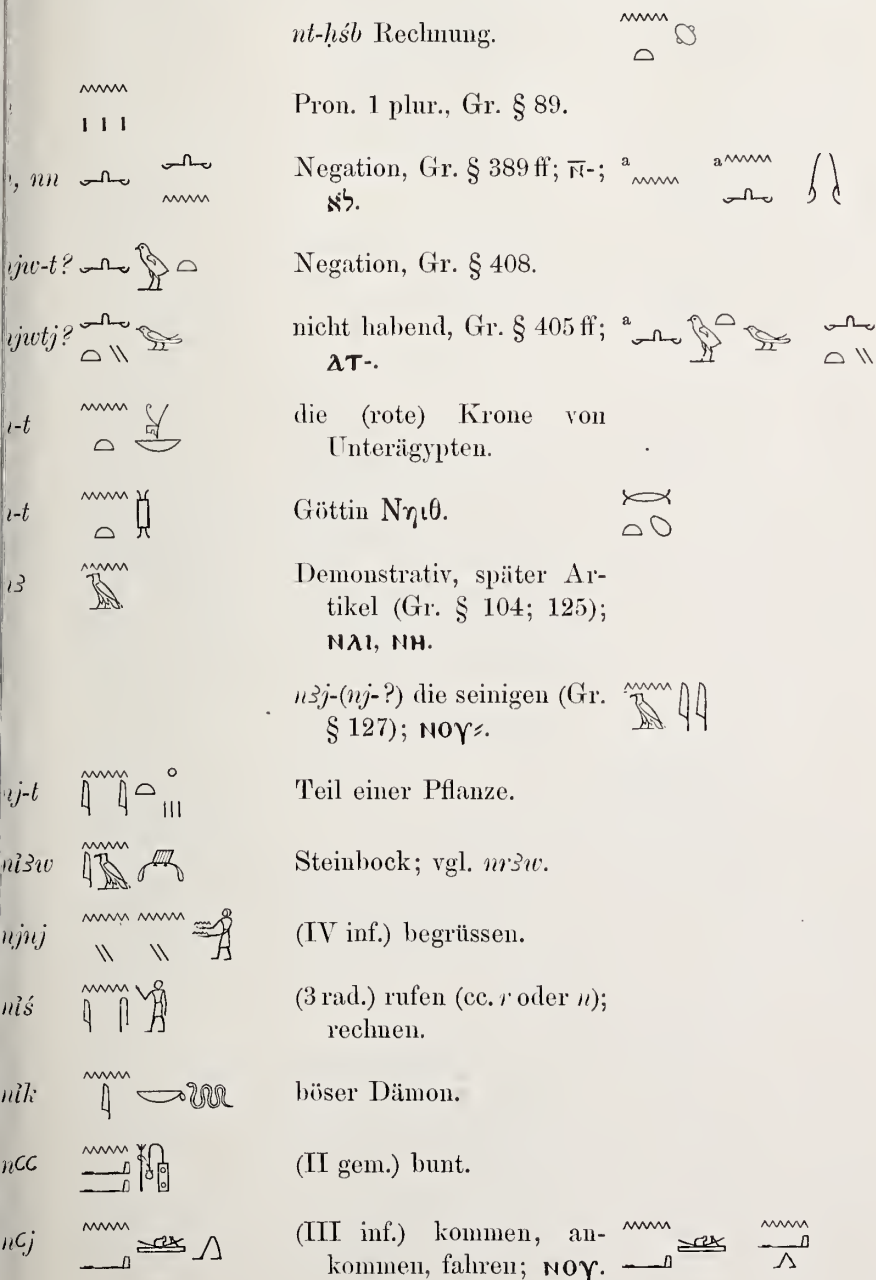 nt-ḥśb Rechnung. 𓈖𓏏
𓈖𓏥 Pron. 1 plur., Gr. § 89.
nn 𓂜 𓂜𓈖 Negation, Gr. § 389 ff; ⲛ̅-; a 𓈖 a 𓈖𓂜
לא.
jw-t? 𓂜𓅱𓏏 Negation, Gr. § 408.
jwtj? 𓂜𓏏𓏭𓅪 nicht habend, Gr. § 405 ff; a 𓂜𓅱𓏏𓅪 𓂜𓏏𓏭
ⲁⲧ-.
-t 𓈖𓏏 die (rote) Krone von
Unterägypten.
-t 𓈖𓏏 Göttin Νηιθ.
ꜣ 𓈖𓅓 Demonstrativ, später Ar-
tikel (Gr. § 104; 125);
ⲛⲁⲓ, ⲛⲏ.
nꜣj-(nj-?) die seinigen (Gr.
§ 127); ⲛⲟⲩ⸗.
nj-t 𓈖𓇋𓇋𓏏 Teil einer Pflanze.
nı͗ꜣw Steinbock; vgl. nrꜣw.
njnj (IV inf.) begrüssen.
nı͗ś 𓈖𓇋𓋴𓀁 (3 rad.) rufen (cc. r oder n);
rechnen.
nı͗k 𓈖𓇋𓎡𓆙 böser Dämon.
nꜥꜥ 𓈖𓂝𓂝𓏞 (II gem.) bunt.
nꜥj 𓈖𓂝𓂻 (III inf.) kommen, an-
kommen, fahren; ⲛⲟⲩ. 𓈖𓂝 𓈖𓂝𓂻